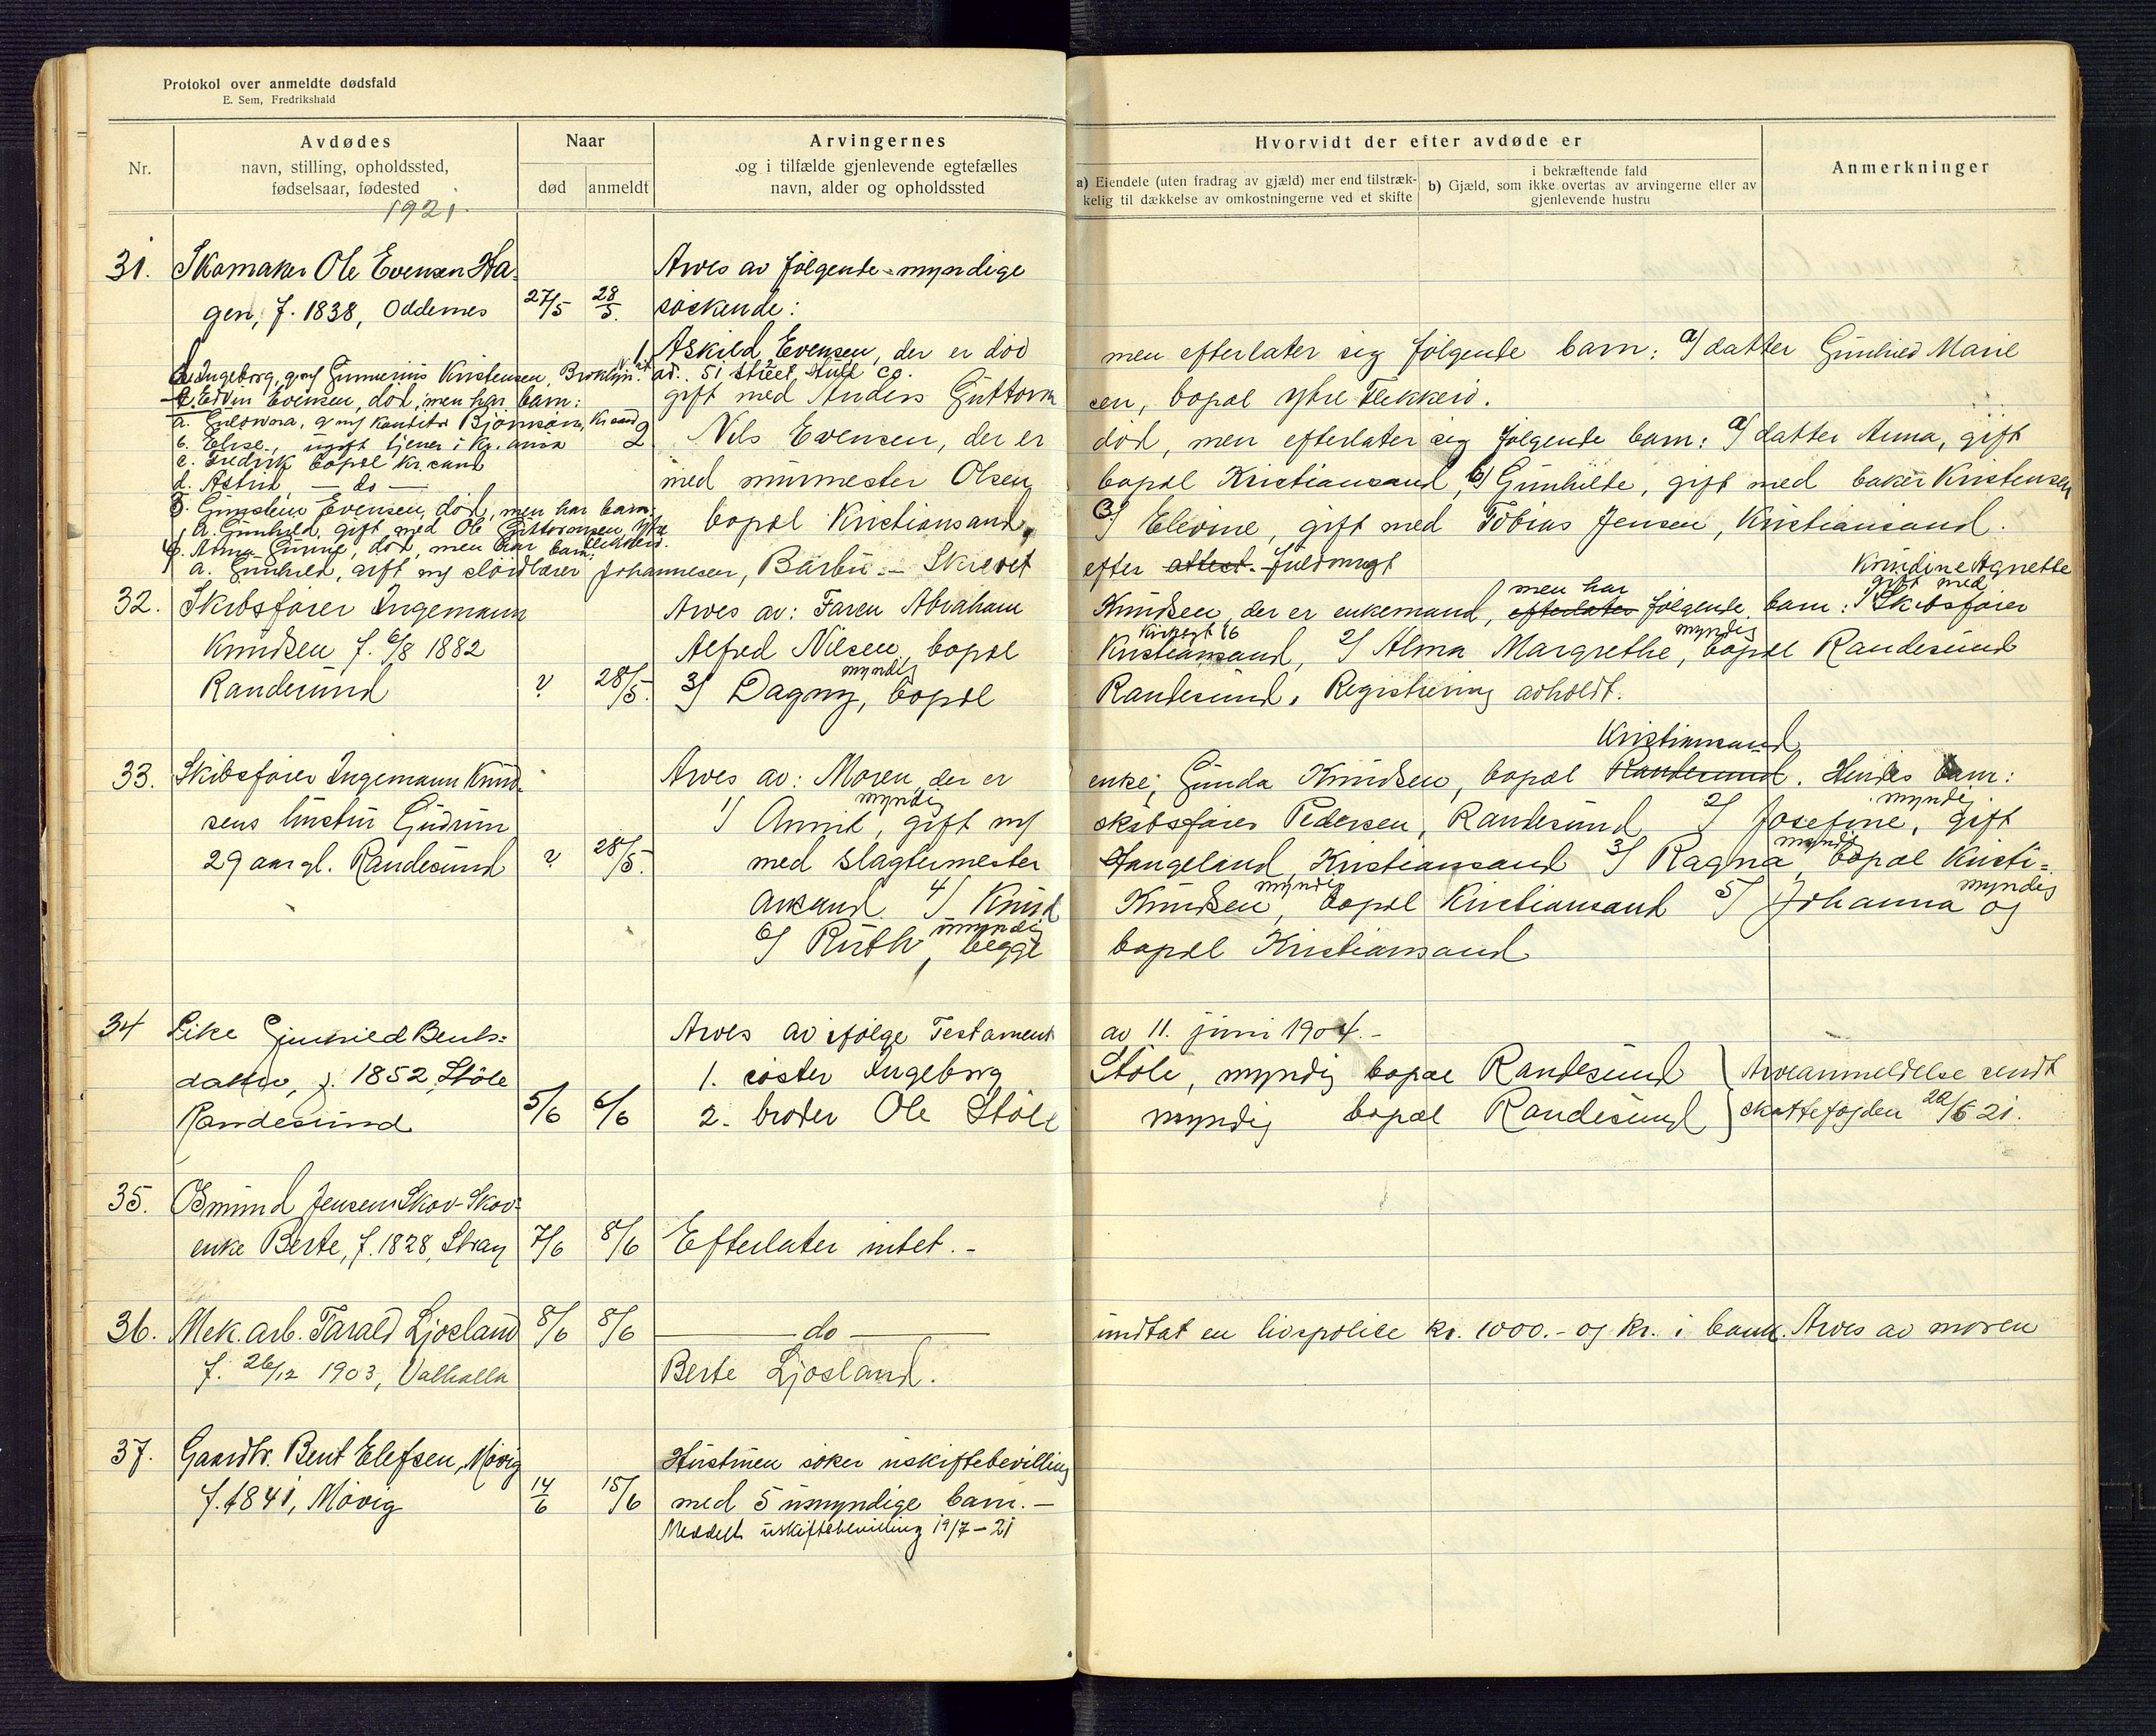 Protokol over anmeldte dødsfald
E. Sem, Fredrikshald
Nr.
Avdødes
navn, stilling, opholdssted,
fødselsaar, fødested
1921.
Naar
død
anmeldt
Arvingernes
og i tilfælde gjenlevende egtefælles
navn, alder og opholdssted
Hvorvidt der efter avdøde er
a) Eiendele (uten fradrag av gjæld) mer end tilstræk-
kelig til dækkelse av omkostningerne ved et skifte
i bekræftende fald
b) Gjæld, som ikke overtas av arvingerne eller av
gjenlevende hustru
Anmerkninger
31. Skomaker Ole Evensen Ha-
gen, f. 1838, Oddernes 27/5 28/5.
Arves av følgende myndige
søskende:
1. Askild Evensen, der er død men efterlater sig følgende barn: a/ datter Gunhild Marie
gift med Anders Guttorm sen, bopæl Ytre Flekkerø.
2 Nils Evensen, der er død, men efterlater sig følgende barn: a/ datter Anna, gift
med murmester Olsen bopæl Kristiansand, b/ Gunhilde, gift med baker Kristensen
bopæl Kristiansand, 3/ Elevine, gift med Tobias Jensen, Kristiansand.
Ingeborg, g. m/ Gunnerius Kristensen, Broklyn. ad. 51 street,
Edvin Evensen, død, men har barn:
a. Guldvora, g m/ Konditor Bjørnson, Kr.sand
b. Elise, ugift tjener i Kr.ania
c. Fredrik bopæl Kr.sand
d. Astrid — do —
3. Gunstein Evensen, død, men har barn:
a. Gunhild, gift med Ole Guttormsen, Ytre
Flekkerø.
4. Anna Gurine, død, men har barn:
a. Gunhild, gift m/ Johannesen, Barbu. — Skrevet efter attest. fuldmagt
32. Skibsfører Ingemann
Knudsen f. 6/8 1882
Randesund ? 28/5.
Arves av: Faren Abraham Knudsen, der er enkemand, men har efterlater følgende barn: 1/ Knudine Agnethe
gift med Skibsfører
Alfred Nilsen, bopæl Kristiansand, 2/ Alma Margrethe, myndig bopæl Randesund
3/ Dagny, myndig bopæl Randesund. Registrering avholdt.
33. Skibsfører Ingemann Knud-
sens hustru Gudrun
29 aar gl. Randesund ? 28/5.
Arves av: Moren, der er enke, Gunda Knudsen, bopæl Randesund Kristiansand. Hendes barn:
1/ Annie, myndig gift m/ skibsfører Pedersen, Randesund 2/ Josefine, myndig gift
med slagtermester Haugeland, Kristiansand 3/ Ragna myndig bopæl Kristi-
ansand 4/ Knud Knudsen, myndig bopæl Kristiansand 5/ Johanna myndig og
6/ Ruth, umyndig begge bopæl Kristiansand
34 Pike Gunhild Bents-
datter, f. 1852, Støle
Randesund 5/6 6/6
Arves av ifølge Testament av 11. juni 1904.-
1. søster Ingeborg Støle, myndig bopæl Randesund
2. broder Ole Støle myndig bopæl Randesund
Arveanmeldelse sendt
skattefogden 20/6 21.
35. Osmund Jensen Skov-Skov-
enke Berte, f. 1828, Stray 7/6 8/6 Efterlater intet.-
36. Mek. arb. Tarald Ljosland 8/6 8/6 — do — undtat en livspolice kr. 1000.- og kr. i bank. Arves av moren
f. 26/12 1903, Valhalla
Berte Ljosland.
37. Gaardbr. Bent Elefsen, Møvig
f. 1841, Møvig 14/6 15/6
Hustruen søker uskiftebevilling
med 5 umyndige barn.—
Meddelt uskiftebevilling 19/7-21